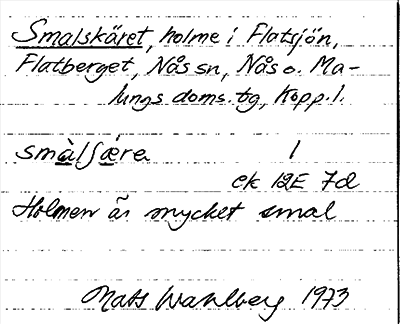 Smalskäret, holme i Flatsjön,
Flatberget, Nås sn, Nås o. Ma-
lungs doms. tg, Kopp. l.
1
ek 12E 7d
Holmen är mycket smal
Mats Wahlberg 1973